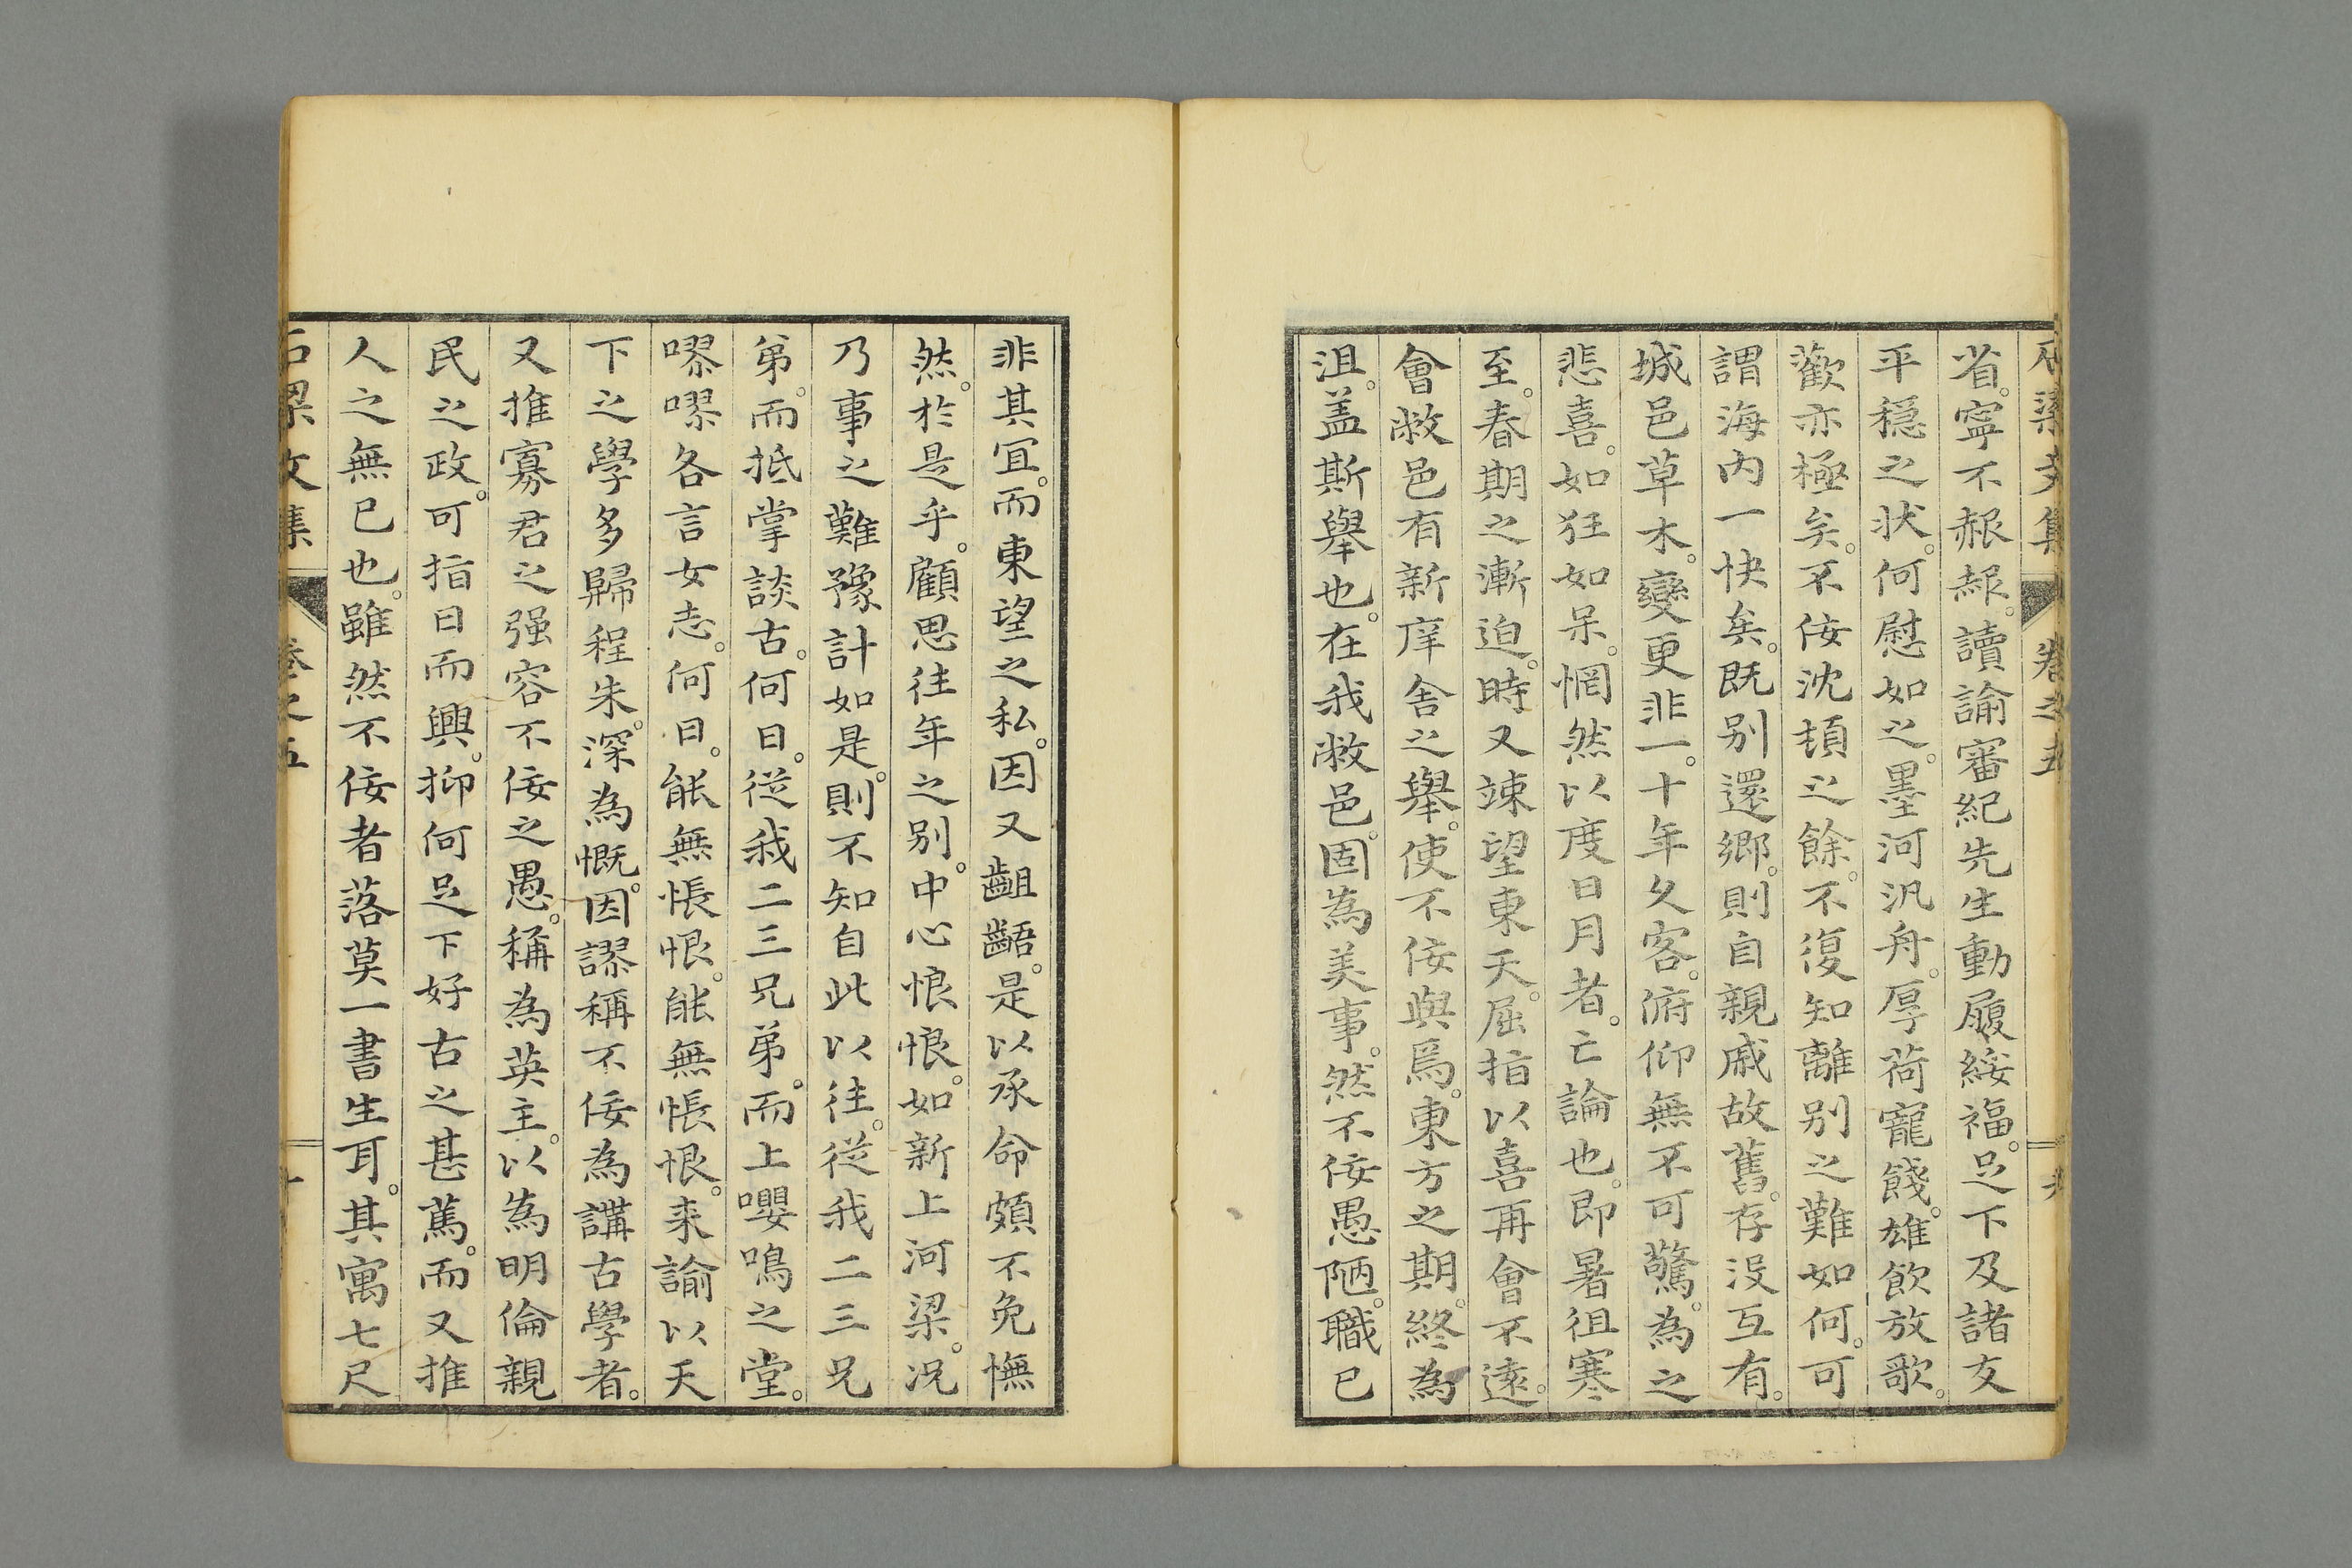 省。寧不赧赧。讀諭審紀先生動履綏福。足下及諸友
平穩之狀。何慰如之。墨河汎舟。厚荷寵餞。雄飲放歌。
歡亦極矣。不佞沈頓之餘。不復知離別之難如何。可
謂海內一快矣。既別還鄉。則自親戚故舊。存沒互有。
城邑草木。變更非一。十年久客。俯仰無不可驚。為之
悲喜。如狂如呆。惘然以度日月者。亡論也。即暑徂寒
至。春期之漸迫。時又竦望東天。屈指以喜再會不遠。
會敝邑有新庠舍之舉。使不佞與焉。東方之期。終為
沮。盖斯舉也。在我敝邑。固為美事。然不佞愚陋。職已
非其宜。而東望之私。因又齟齬。是以承命頗不免憮
然。於是乎。顧思往年之別。中心悢悢。如新上河梁。況
乃事之難豫計如是。則不知自此以往。從我二三兄
弟。而抵掌談古。何日。從我二三兄弟。而上嚶鳴之堂。
嘐嘐各言女志。何日。能無悵恨。能無悵恨。来諭以天
下之學多歸程朱。深為慨。因謬稱不佞為講古學者。
又推寡君之强容不佞之愚。稱為英主。以為明倫親
民之政。可指日而興。抑何足下好古之甚篤。而又推
人之無已也。雖然不佞者落莫一書生耳。其寓七尺
文集 卷之五